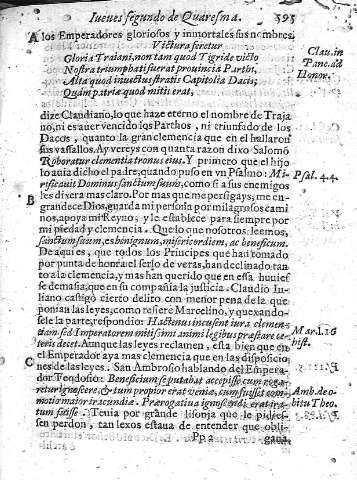 Iueves segundo de Quaresma. 595
A los Emperadores gloriosos y inmortales sus nombres.
Victura feretur
Gloria Traiani, non tam quod Tigride victo
Nostra triumphati fuerat provincia Parthi,
Alta quod inuectus stratis Capitolia Dacis;
Quàm patriæ quod mitis erat,
Clau. in
Pane. ad
Honor.
dize Claudiano, lo que haze eterno el nombre de Traja
no, ni es auer vencido los Parthos, ni triunfado de los
Dacos, quanto la gran clemencia que en el hallaron
sus vassallos. Ay vereys con quanta razon dixo Salomõ
Roboratur clementia tronus eius. Y primero que el hijo
lo auia dicho el padre, quando puso en vn Psalmo: Mi-
rificauit Dominus sanctum suum, como si a sus enemigos
Psal. 4. 4.
les dixera mas claro. Por mas que me persigays, me en-
B grandece Dios, guarda mi persona por milagrosos cami
nos, apoya mi Reyno, y le establece para siempre por
mi piedad y clemencia. Que lo que nosotros leemos,
sanctum suum, es benignum, misericordiem, ac beneficum.
De aqui es, que todos los Principes que han tomado
por punta de honra el serlo de veras, han declinado tan
to a la clemencia, y mas han querido que en essa huuies
se demasia, que en su compañia la justicia. Claudio Iu
liano castigò cierto delito con menor pena de la que
ponian las leyes, como refiere Marcelino, y quexando-
se le la parte, respondio: Hactenus incusent iura clemen-
tiam, sed Imperatorem mitissimi animi legibus præstare cæ-
Marl. 16
teris decet. Aunque las leyes reclamen, està bien que en
hist.
el Emperador aya mas clemencia que en las disposicio
C nes de las leyes. San Ambrosio hablando del Empera-
dor Teodosio: Beneficium se putabat accepisse cum roga-
retur ignoscere, & tum propior erat veniæ, cum fuisset com-
Amb. de o-
motio maior iracundiæ. Prærogatiua ignoscendi erat ira-
bitu Theo.
tum fuisse. Tenia por grande lisonja que le pidies-
sen perdon, tan lexos estaua de entender que obli-
Pp 2 gaua